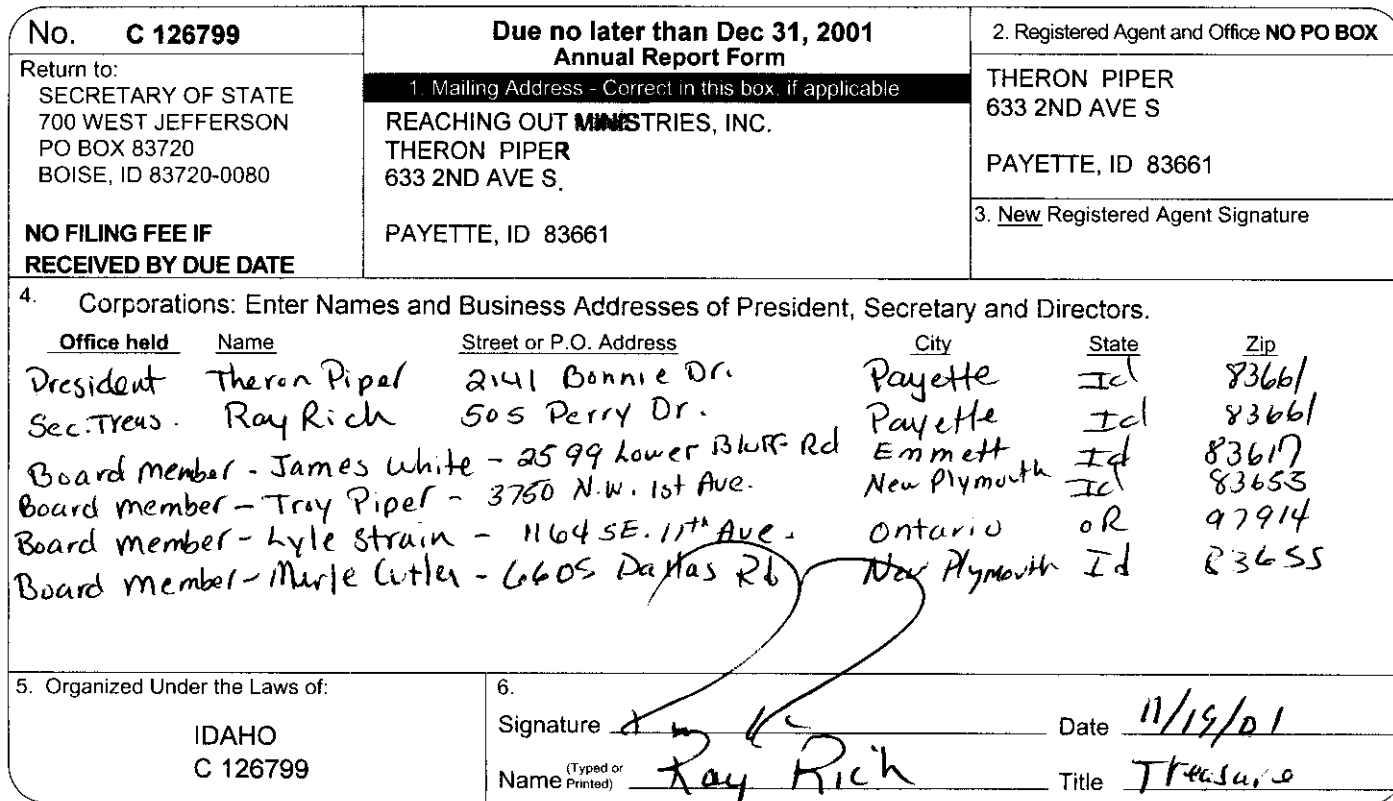 No. C 126799
Return to:
SECRETARY OF STATE
700 WEST JEFFERSON
PO BOX 83720
BOISE, ID 83720-0080
NO FILING FEE IF
RECEIVED BY DUE DATE
Due no later than Dec 31, 2001
Annual Report Form
1. Mailing Address - Correct in this box, if applicable
REACHING OUT MINISTRIES, INC.
THERON PIPER
633 2ND AVE S.
PAYETTE, ID 83661
2. Registered Agent and Office NO PO BOX
THERON PIPER
633 2ND AVE S
PAYETTE, ID 83661
3. New Registered Agent Signature
4. Corporations: Enter Names and Business Addresses of President, Secretary and Directors.
Office held Name Street or P.O. Address City State Zip
President Theron Piper 2141 Bonnie Dr. Payette Id 83661
Sec.Treas. Ray Rich 505 Perry Dr. Payette Id 83661
Board member - James White - 2599 Lower Bluff Rd Emmett Id 83617
Board member - Troy Piper - 3760 N.W. 1st Ave. New Plymouth Id 83655
Board member - Lyle Strain - 1164 SE. 11th Ave. Ontario OR 97914
Board member - Merle Cutler - 6605 Dallas Rd New Plymouth Id 83655
5. Organized Under the Laws of:
IDAHO
C 126799
6.
Signature Date
Name (Typed or Printed) Ray Rich Title Treasure